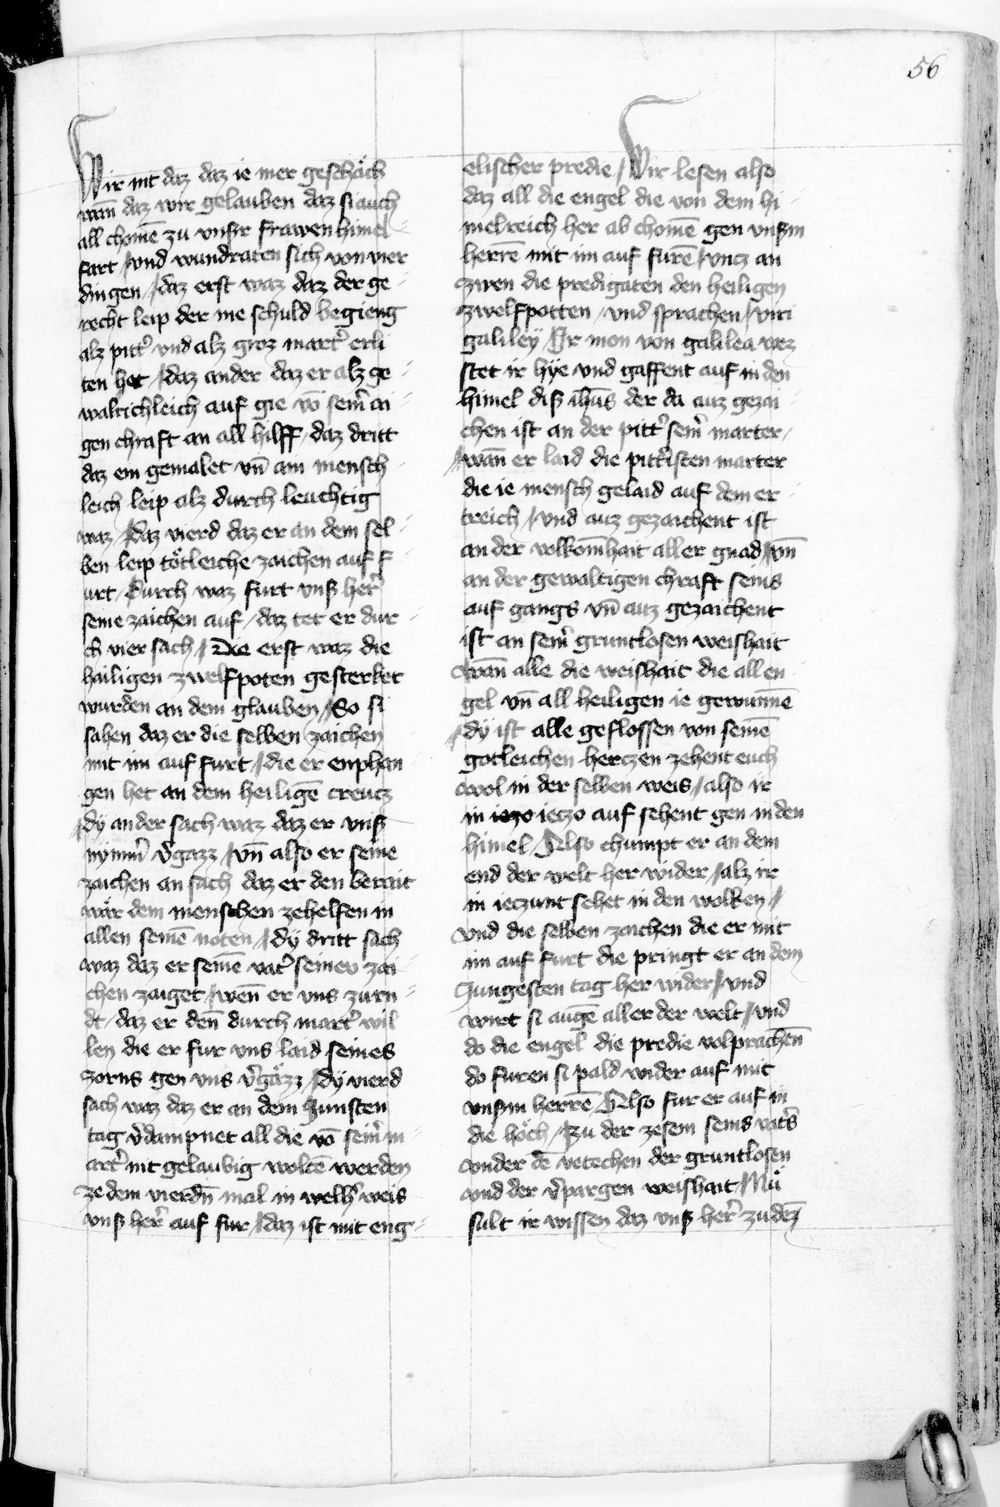 56
Wir nit daz daz ie mer geschäch
wan̄ daz wir gelauben daz si auch
all chomē zu vnsṙ frawen himel
fart / vnd wundraten sich von vier
dingen / daz erst waz daz der ge
recht leip der nie schuld begieng
alz pitt̉ vnd alz groz mart̉ erli
ten het / daz ander daz er alz ge
waltichleich auf gie vō sein̉ ai
gen chraft an all hilff / daz dritt
daz ein gemalet vn̄ ain mensch
leich leip alz durch leuchtig
waz / daz vierd daz er an dem sel
ben leip tötleiche zaichen auf f
urt / Durch waz furt vnß her̉
seine zaichen auf / daz tet er dur
ch vier sach / Die erst waz die
hailigen zwelfpoten gesterket
wurden an dem glauben / So si
sahen daz er die selben zaichen
mit im auf furt / die er enphan
gen het an dem heiligē creucz
/ dÿ ander sach waz daz er vnß
nÿmm̉ v̉gazz / vn̄ also er seine
zaichen an sach daz er den berait
wär dem menschen zehelfen in
allen seinē noten / dÿ dritt sach
waz daz er seinē vat̉ seinev zai
chen zaiget / wen̄ er vns zurn
dt / daz er den̄ durch mart̉ wil
len die er fur vns laid seines
zorns gen vns v̉gäzz / dÿ vierd
sach waz daz er an dem Junsten
tag v̉dampnet all die vō sein̉ m
art̉ nit gelaubig woltē werden
ze dem vierdn̄ mal in welh̉ weis
vnß her̉ auf fur / daz ist mit eng
elischer predie / Wir lesen also
daz all die engel die von dem hi
melreich her ab chomē gen vnßm
herrē mit im auf furē / vncz an
zwen die predigaten den heiligen
zwelfpotten / vnd sprachen / viri
galileÿ / Ir mon von galilea wez
stet ir hÿe vnd gaffent auf in den
himel diß ih̄us der da auz gezai
chen ist an der pitt̉ sein̉ marter /
/ wan̄ er laid die pitt̉isten marter
die ie mensch gelaid auf dem er
treich / vnd auz gezaichent ist
an der volkom̄hait aller gnad / vn̄
an der gewaltigen chraft seins
auf gangs vn̄ auz gezaichent
ist an sein̉ gruntlosen weishait
wan̄ alle die weishait die all en
gel vn̄ all heiligen ie gewunnē
/ dÿ ist alle geflossen von seinē
gotleichen herczen zehent euch
wol in der selben weis / also ir
in iezo ieczo auf sehent gen in den
himel / Also chumpt er an dem
end der welt her wider / alz ir
in ieczunt sehet in den wolken /
vnd die selben zaichen die er mit
im auf furt die pringt er an dem
Jungesten tag her wider / vnd
wirt si augē aller der welt / vnd
do die engel die predie volprachen̄
do furen si pald wider auf mit
vnßm herrē / Also fur er auf in
die höch / zu der zesem seins vat̉s
vnder dē vetechen der gruntlosen
vnd der v̉pargen weishait / Nu
sult ir wissen daz vnß her̉ zu dez